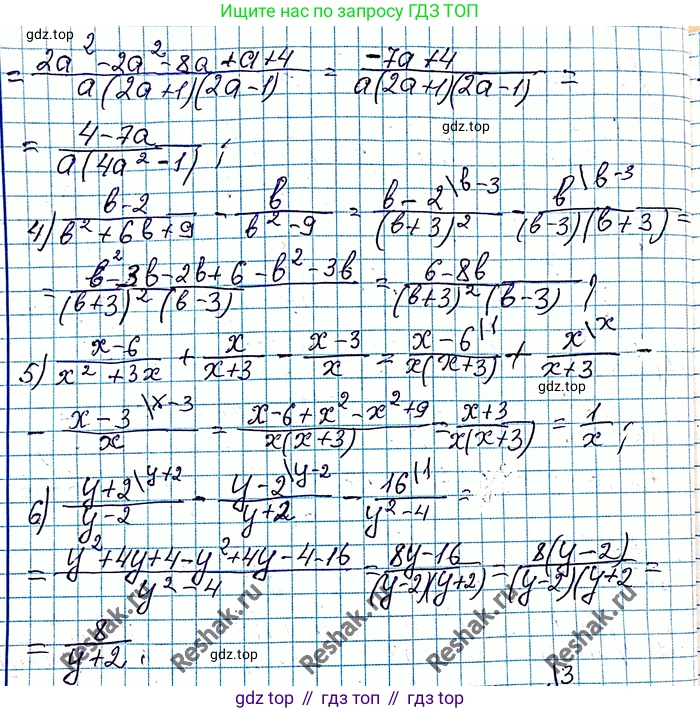 Ищите нас по запросу ГДЗ ТОП
gdz.top
= (2a² - 2a² - 8a + a + 4)/(a(2a+1)(2a-1)) = (-7a+4)/(a(2a+1)(2a-1)) =
gdz.top
= (4-7a)/(a(4a²-1)) ;
4) (b-2)/(b²+6b+9) - b/(b²-9) = (b-2\b-3)/((b+3)²) - (b\b-3)/((b-3)(b+3)) =
= (b²-3b-2b+6-b²-3b)/((b+3)²(b-3)) = (6-8b)/((b+3)²(b-3)) ;
5) (x-6)/(x²+3x) + x/(x+3) - (x-3)/x = (x-6\1)/(x(x+3)) + (x\x)/(x+3) -
gdz.top
- (x-3\x-3)/x = (x-6+x²-x²+9)/(x(x+3)) = (x+3)/(x(x+3)) = 1/x ;
6) (y+2\y+2)/(y-2) - (y-2\y-2)/(y+2) - (16\1)/(y²-4) =
= (y²+4y+4-y²+4y-4-16)/(y²-4) = (8y-16)/((y-2)(y+2)) = (8(y-2))/((y-2)(y+2 =
= 8/(y+2) ;
gdz.top
Reshak.ru
Reshak.ru
Reshak.ru
Reshak.ru
gdz top // гдз топ // gdz.top